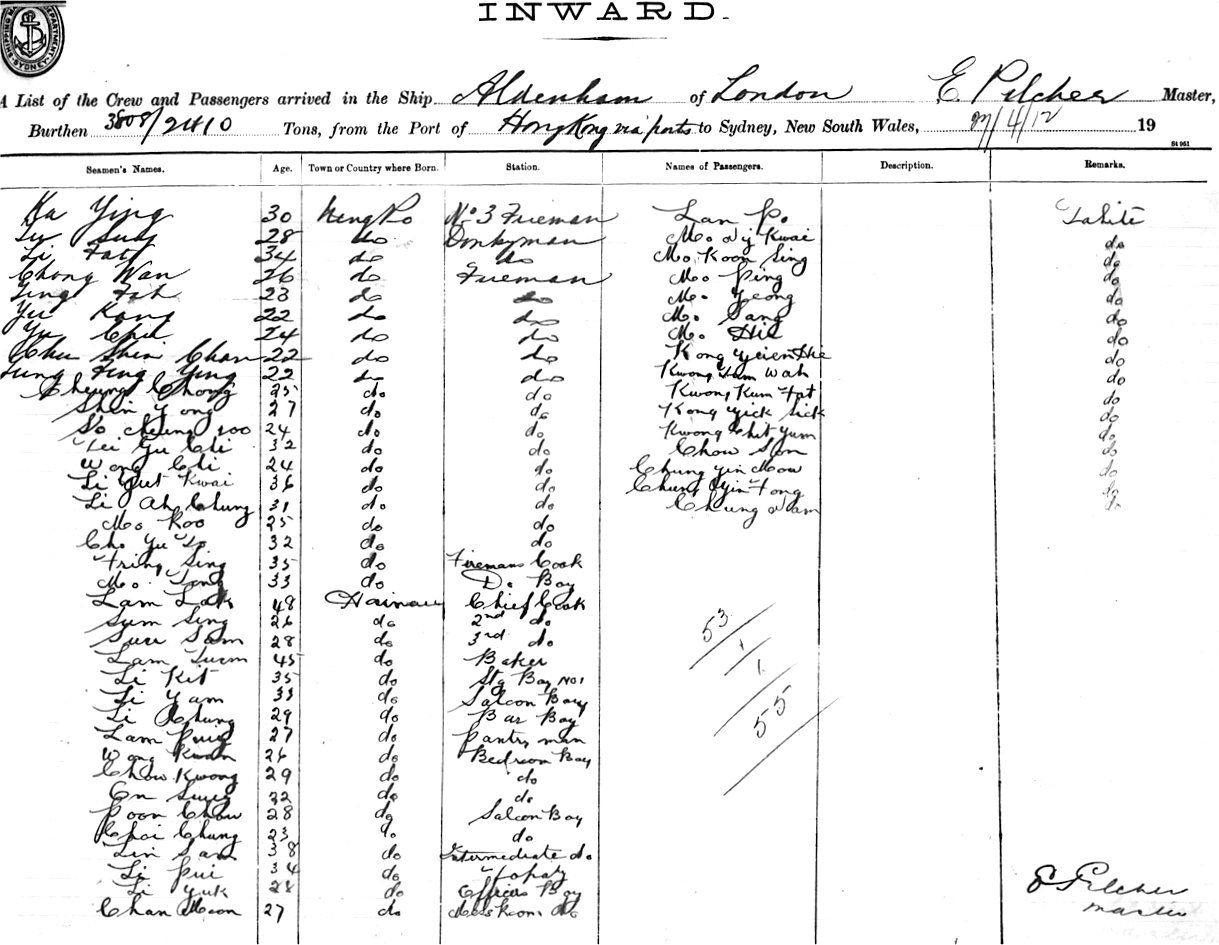 INWARD.
A List of the Crew and Passengers arrived in the Ship Aldenham of London E. Pilcher Master,
Burthen 3808/2410 Tons, from the Port of HongKong via ports to Sydney, New South Wales, 4/12 19
St 951
Seamen's Names. Age. Town or Country where Born. Station. Names of Passengers. Description. Remarks.
Ka Ying 30 Ning Po No 3 Fireman Lan Po Tahiti
28 do Donkyman Mo Kwai do
Li Fatt 34 do do Mo Koon Sing do
Chong Wan 26 do Fireman Mo Ping do
23 do do Mo Yeong do
Yu Kang 22 do do Mo Sang do
Yu Chu 24 do do Mo Hie do
Chu Shin Chan 22 do do Kong do
Tung Ting Ying 22 do do Kwong Wah do
Cheung Chong 25 do do Kwong Kum Fat do
Shin Yong 27 do do Kong Yick Sick do
So Cheung Soo 24 do do Kwong Chit Yum do
Lei Yu Chi 32 do do Chow Son do
Wong Chi 24 do do Chung Yin Mow do
Li Yut Kwai 36 do do Chung Yin Tong do
Li Ah Chung 31 do do Chung Nam do
Mo Koo 25 do do
Cho Yu 32 do do
Tring Sing 35 do Firemans Cook
Mo Tong 33 do Do Boy
Lam Lak 48 Hainau Chief Cook
Sum Sing 26 do 2nd do
Suu Sam 28 do 3rd do
Lam Tuem 45 do Baker
Li Kit 35 do Stg Boy No 1
Li Yam 33 do Saloon Boy
Li Chung 29 do Bar Boy
Lam Puig 27 do Pantry man
Wong Kwan 26 do Bedroom Boy
Chow Kwong 29 do do
En Sung 32 do do
Poon Chou 28 do Saloon Boy
Choi Chung 23 do do
Lin Sam 38 do Intermediate do
Li Pui 34 do
Li Yuk 28 do Officers Boy
Chan Moon 27 do Messroom do
53
1
1
55
E Pilcher
master